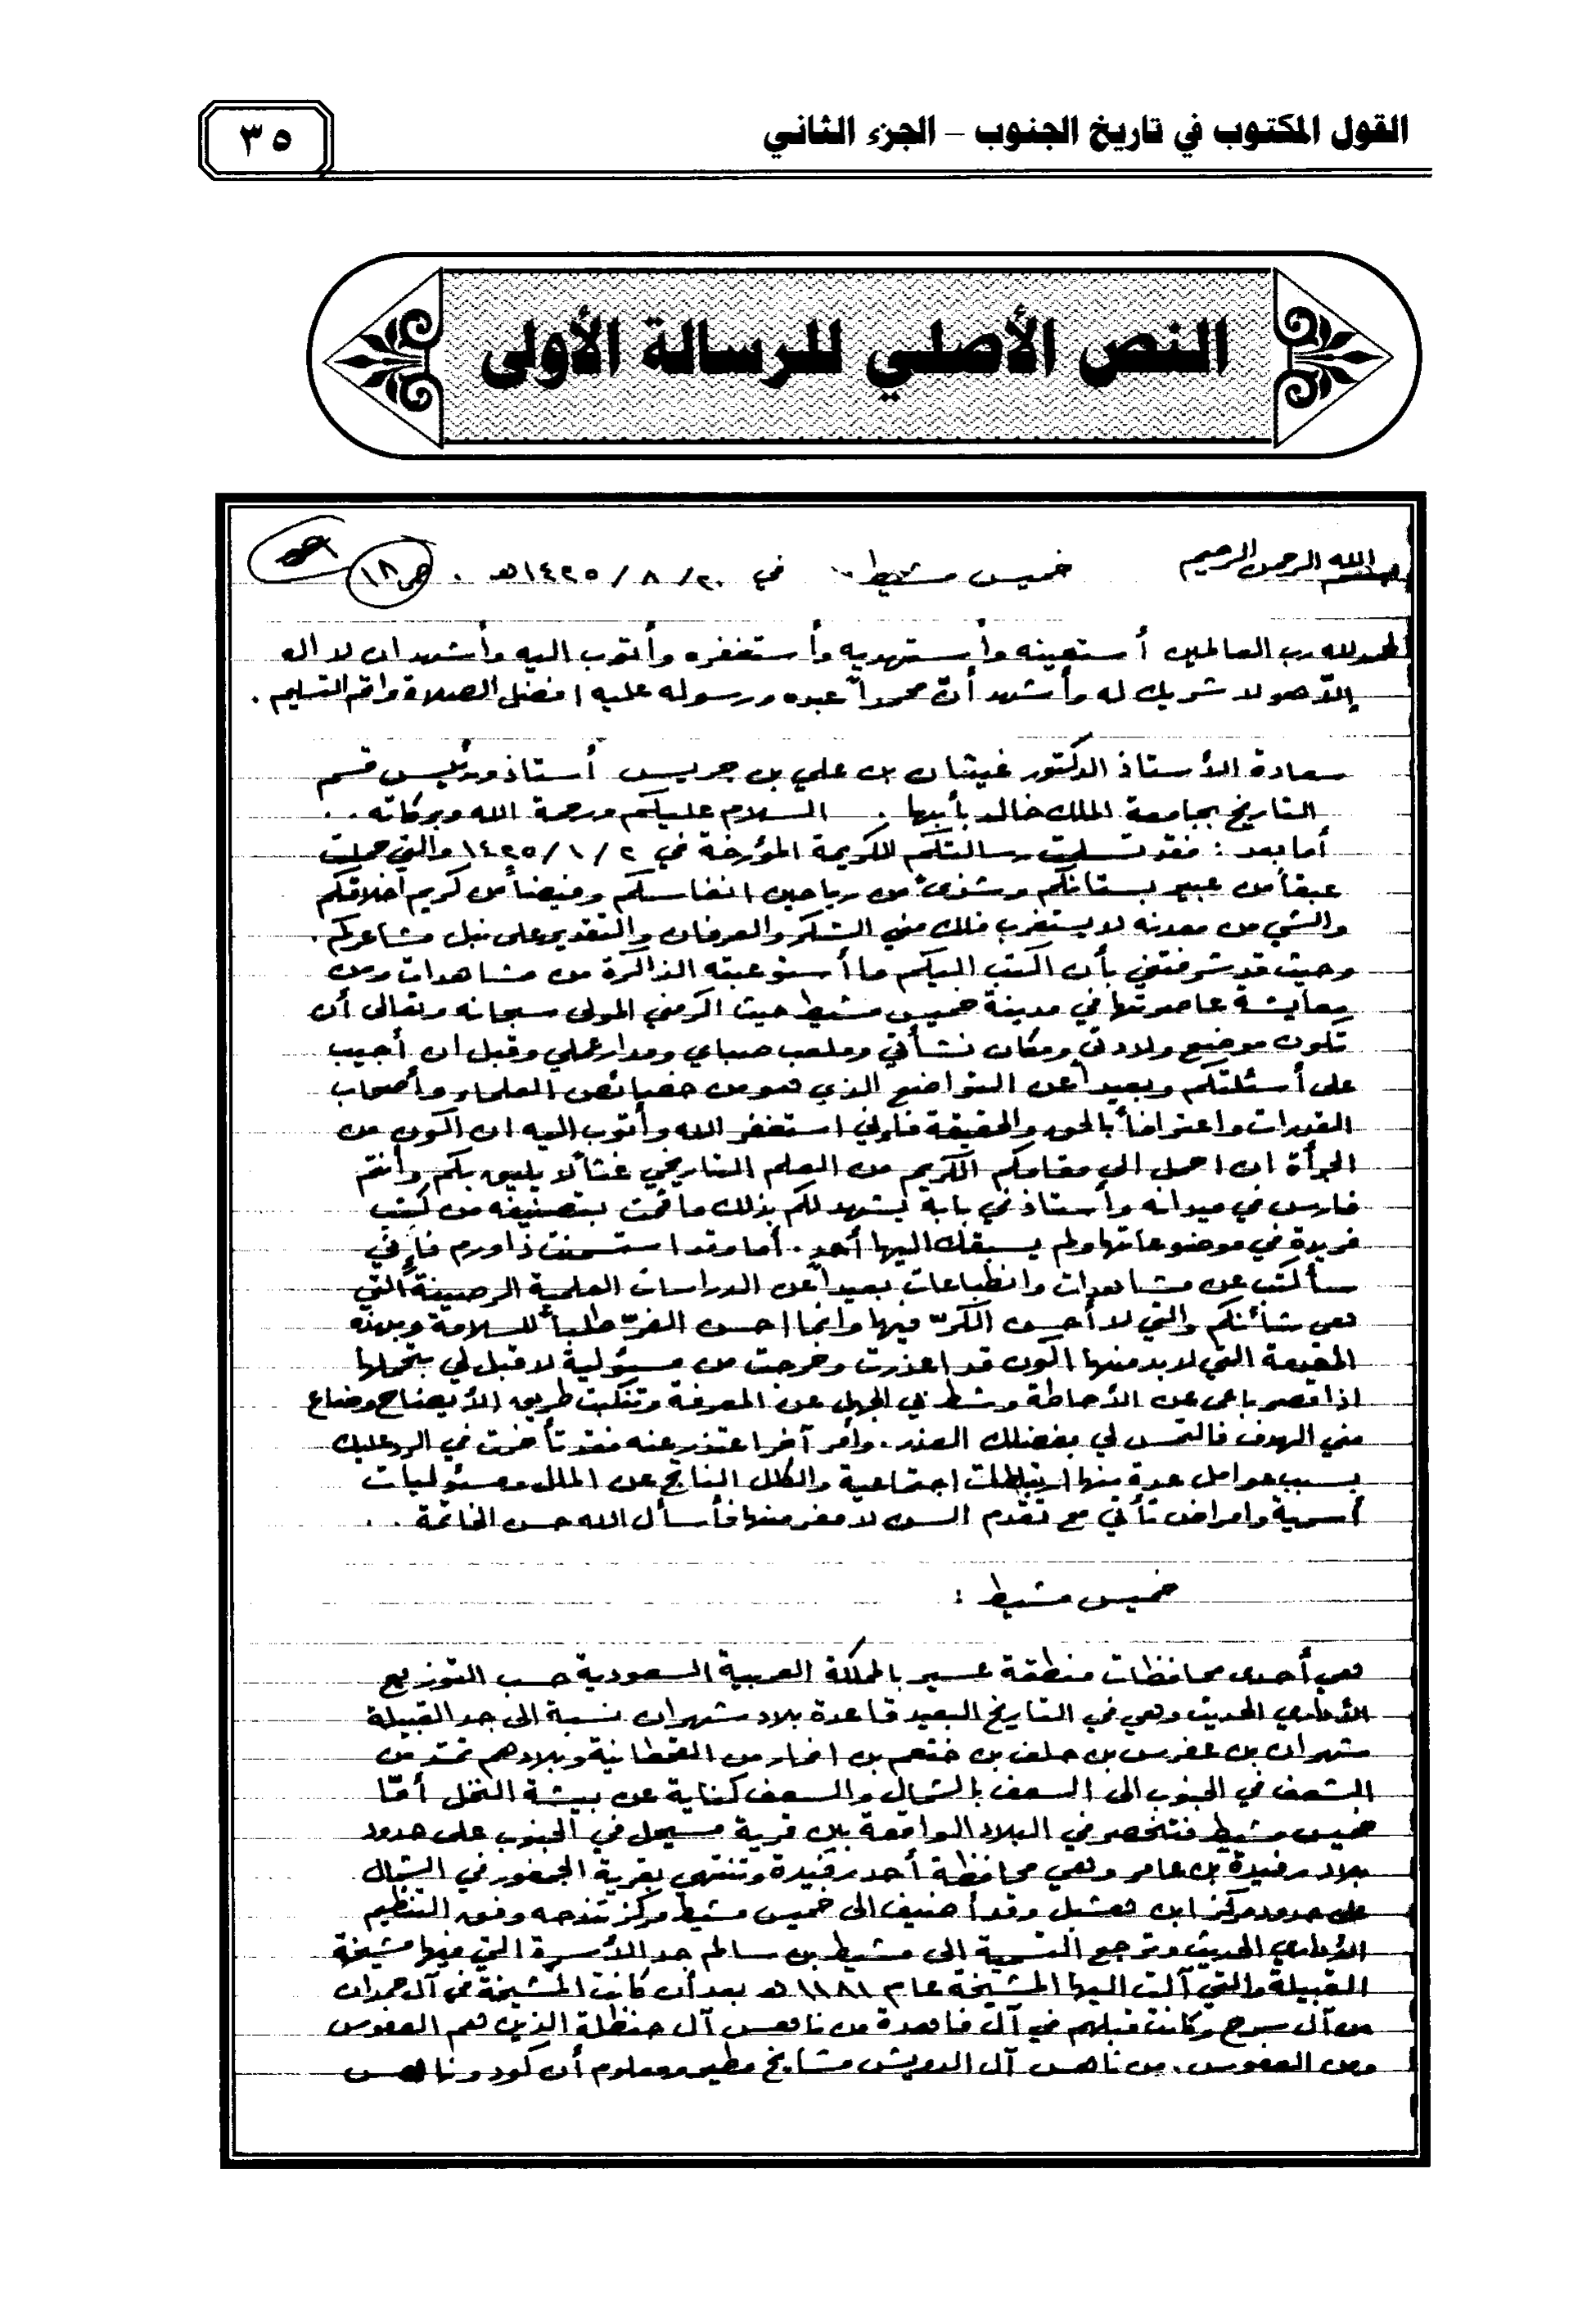 القول المكتوب في تاريخ الجنوب – الجزء الثاني
٣٥
النص الأصلي للرسالة الأولى
بسم الله الرحمن الرحيم خميس مشيط في ٢٠/٨/١٤٢٥هـ . ص١٨
الحمد لله رب العالمين أستعينه وأستهديه وأستغفره وأتوب اليه وأشهد ان لا اله
إلاّ هو لا شريك له وأشهد أنّ محمداً عبده ورسوله عليه افضل الصلاة واتم التسليم .
سعادة الأستاذ الدكتور غيثان بن علي بن جريس أستاذ ورئيس قسم
التاريخ بجامعة الملك خالد بأبها . السلام عليكم ورحمة الله وبركاته . .
أما بعد : فقد تسلمت رسالتكم الكريمة المؤرخة في ٢/١/١٤٢٥ والتي حملت
عبقاً من عبير بستانكم وشذىً من رياحين انفاسكم وفيضاً من كريم أخلاقكم
والشي من معدنه لا يستغرب فلك مني الشكر والعرفان والتقدير على نبل مشاعركم .
وحيث قد شرفتني بأن اكتب اليكم ما أستوعبته الذاكرة من مشاهدات ومن
معايشة عاصرتها في مدينة خميس مشيط حيث اكرمني المولى سبحانه وتعالى أن
تكون موضع ولادتي ومكان نشأتي وملعب صباي ومدار عملي وقبل ان أجيب
على أسئلتكم وبعيداً عن التواضع الذي هو من خصائص العلماء وأصحاب
القدرات واعترافاً بالحق والحقيقة فإنني استغفر الله وأتوب اليه ان اكون من
الجرأة ان احمل الى مقامكم الكريم من العلم التاريخي غثاً لا يليق بكم وأنتم
فارس في ميدانه وأستاذ في بابه يشهد لكم بذلك ما قمت بتصنيفه من كتب
فريدة في موضوعاتها ولم يسبقك اليها أحد . أما وقد استسمنت ذا ورم فإنني
سأكتب عن مشاهدات وانطباعات بعيداً عن الدراسات العلمية الرصينة التي
هي شأنكم والتي لا أحسن الكرّ فيها وانما احسن الفرّ طلباً للسلامة وبهذه
المقدمة التي لا بد منها اكون قد اعذرت وخرجت من مسؤلية لا قبل لي بتحملها
اذا قصر باعي عن الأحاطة وشط بي الجهل عن المعرفة وتنكبت طريق الأيضاح وضاع
مني الهدف فالتمس لي بفضلك العذر . وأمر آخر اعتذر عنه فقد تأخرت في الرد عليك
بسبب عوامل عدة منها ارتباطات اجتماعية والكلل الناتج عن الملل ومسئوليات
أسرية وامراض تأتي مع تقدم السن لا مفر منها فأسأل الله حسن الخاتمة . .
خميس مشيط :
هي أحدى محافظات منطقة عسير بالمملكة العربية السعودية حسب التوزيع
الأداري الحديث وهي في التاريخ البعيد قاعدة بلاد شهران نسبة الى جد القبيلة
شهران بن عفرس بن حلف بن خثعم بن انمار من القحطانية وبلادهم تمتد من
الشعف في الجنوب الى السعف بالشمال والسعف كناية عن بيشة النخل أمّا
خميس مشيط فتنحصر في البلاد الواقعة بين قرية مسيحل في الجنوب على حدود
بلاد رفيدة بن عامر وهي محافظة أحد رفيدة وتنتهي بقرية الجمغور في الشمال
على حدود مركز ابن هشبل وقد أضيف الى خميس مشيط مركز تندحه وفق التنظيم
الأداري الحديث وترجع التسمية الى مشيط بن سالم جد الأسرة التي فيها مشيخة
القبيلة والتي آلت اليها المشيخة عام ١١٨١ هـ بعد أن كانت المشيخة في آل حمدان
من آل سرح وكانت قبلهم في آل فاهدة من ناهس آل حنظلة الذين هم العفوس
ومن العفوس . من ناهس آل الدويش مشايخ مطير ومعلوم أن كود وناهس